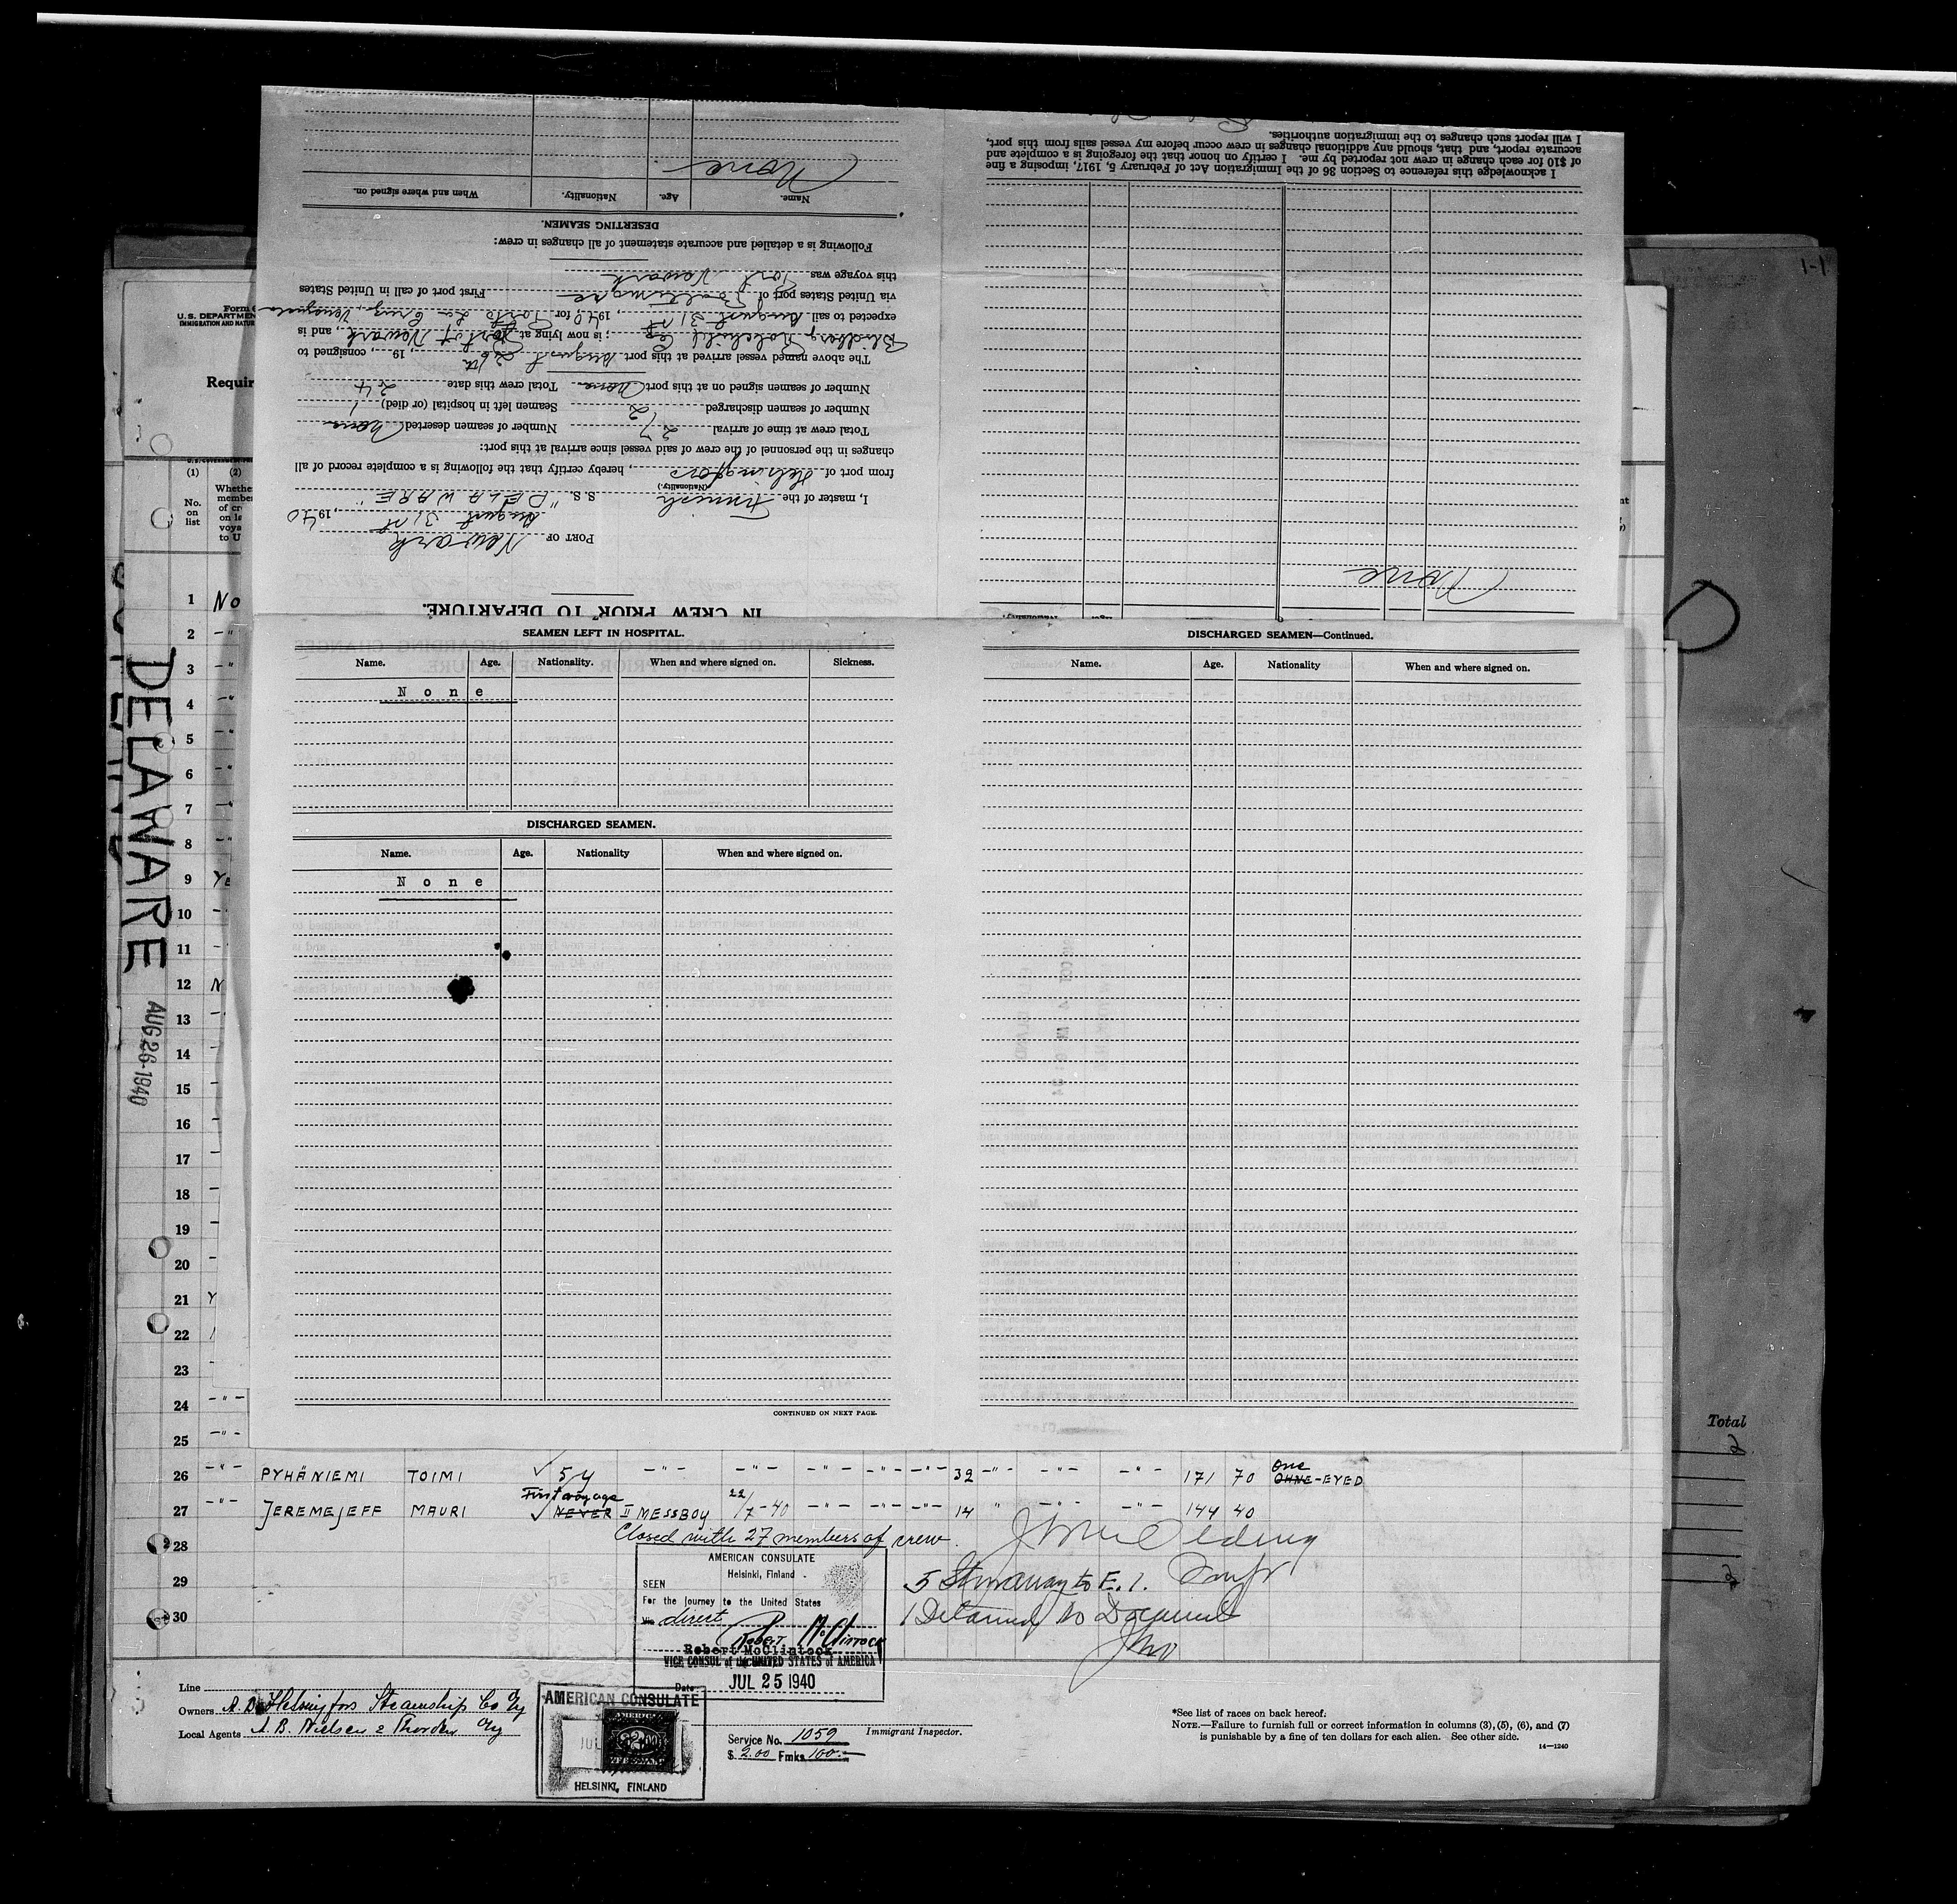 1-1
Form
U.S. DEPARTMEN
IMMIGRATION AND NATUR
Requir
(1)
(2)
No. on list
Whethe
membe
of cr
on la
voya
to U
DELAWARE
AUG 26-1940
I will report such changes to the immigration authorities.
accurate report, and that, should any additional changes in crew occur before my vessel sails from this port,
of $10 for each change in crew not reported by me. I certify on honor that the foregoing is a complete and
I acknowledge this reference to Section 36 of the Immigration Act of February 5, 1917, imposing a fine
None
IN CREW PRIOR TO DEPARTURE.
PORT OF Newark
August 31st, 1940
I, master of the Finnish S. S. "DELAWARE"
(Nationality.)
from port of Helsingfors, hereby certify that the following is a complete record of all
changes in the personnel of the crew of said vessel since arrival at this port:
Total crew at time of arrival 27 Number of seamen deserted None
Number of seamen discharged 2 Seamen left in hospital (or died) 1
Number of seamen signed on at this port None Total crew this date 24
The above named vessel arrived at this port August 26th, 19 , consigned to
; is now lying at Port of Newark, and is
expected to sail August 31st, 1940, for Porto La Cruz, Venezuela
via United States port of Baltimore First port of call in United States
this voyage was Port Newark
Following is a detailed and accurate statement of all changes in crew:
DESERTING SEAMEN.
Name. Age. Nationality. When and where signed on.
None
SEAMEN LEFT IN HOSPITAL.
Name. Age. Nationality. When and where signed on. Sickness.
None
DISCHARGED SEAMEN.
Name. Age. Nationality When and where signed on.
None
CONTINUED ON NEXT PAGE.
DISCHARGED SEAMEN—Continued.
Name. Age. Nationality When and where signed on.
1 No
2 -"
3 -"
4 -"
5 -"
6 -"
7 -"
8 -"
9 Ye
10
11
12 N
13
14
15
16
17
18
19
20
21 Y
22
23
24 -"-
25 -"-
26 -"- PYHÄNIEMI TOIMI ✓ 5 y -"- -"- -"- -"- -"- 32 -"- -"- -"- 171 70 One OHNE-EYED
27 -"- JEREMEJEFF MAURI First voyage ✓ NEVER II MESSBOY 22/7-40 -"- -"- -"- 14 " -"- -"- 144 40
28 Closed with 27 members of crew.
29
30
5 Stowaway to E. I.
1 Detained No Document
AMERICAN CONSULATE
Helsinki, Finland
SEEN
For the journey to the United States
Via direct
Robert McClintock
Robert McClintock
VICE CONSUL of the UNITED STATES of AMERICA
Date JUL 25 1940
Line
Owners A. B. Helsingfors Steamship Co Oy
Local Agents A. B. Nielsen & Thorden Oy
AMERICAN CONSULATE
AMERICAN
$2.00
HELSINKI, FINLAND
Service No. 1059
$ 2.00 Fmks 100.-
Immigrant Inspector.
*See list of races on back hereof.
NOTE.—Failure to furnish full or correct information in columns (3), (5), (6), and (7)
is punishable by a fine of ten dollars for each alien. See other side.
14—1240
Total
2
2